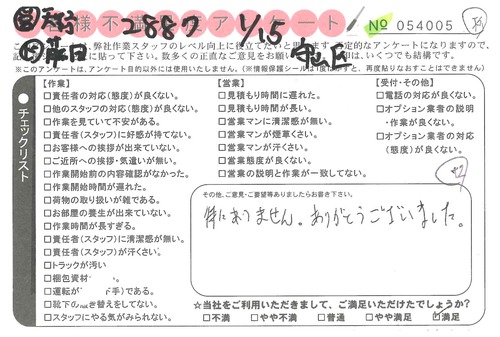 お客様不満足度アンケート
2887 1/15 守山区
№ 054005
、弊社作業スタッフのレベル向上に役立てたいと
※このアンケートは、アンケート目的以外には使用いたしません。(※情報保護シールは
チェックリスト
【作業】
□責任者の対応(態度)が良くない。
□他のスタッフの対応(態度)が良くない。
□作業を見ていて不安がある。
□責任者(スタッフ)に好感が持てない。
□お客様への挨拶が出来ていない。
□ご近所への挨拶・気遣いが無い。
□作業開始前の内容確認がなかった。
□作業開始時間が遅れた。
□荷物の取り扱いが雑である。
□お部屋の養生が出来ていない。
□作業時間が長すぎる。
□責任者(スタッフ)に清潔感が無い。
□責任者(スタッフ)が汗くさい。
□トラックが汚い
□梱包資材
□運転が 手)である。
□靴下の き替えをしてない。
□スタッフにやる気がみられない。
【営業】
□見積もり時間に遅れた。
□見積もり時間が長い。
□営業マンに清潔感が無い。
□営業マンが煙草くさい。
□営業マンが汗くさい。
□営業態度が良くない。
□営業の説明と作業が一致してない。
【受付・その他】
□電話の対応が良くない。
□オプション業者の説明・作業が良くない。
□オプション業者の対応(態度)が良くない。
その他、ご意見・ご要望等ありましたらお書き下さい。
特にありません。ありがとうございました。
☆当社をご利用いただきまして、ご満足いただけたでしょうか?
□不満 □やや不満 □普通 □やや満足 ☑満足